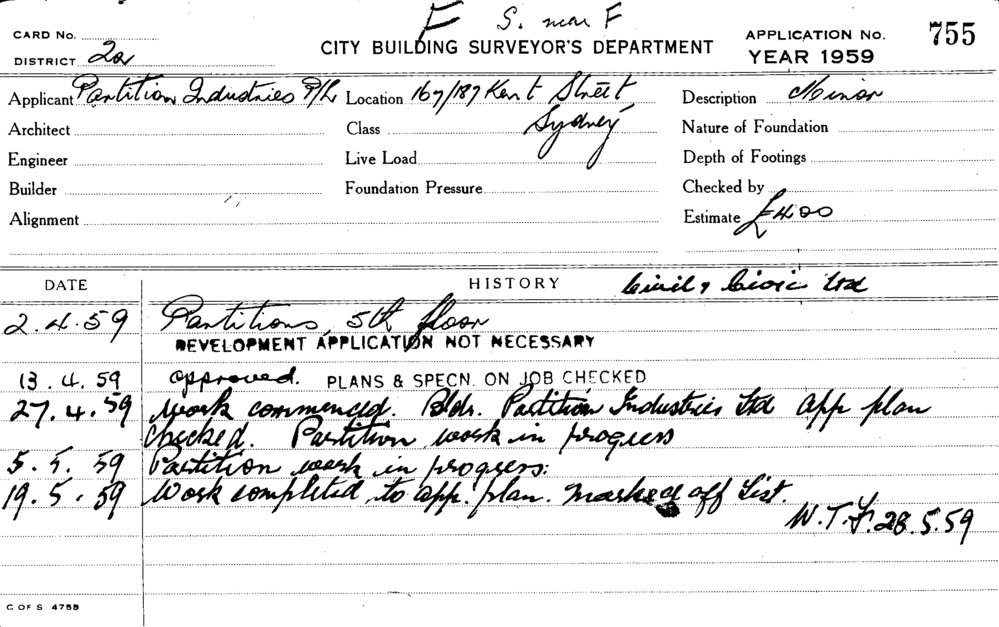 F S. near F
CARD No.
CITY BUILDING SURVEYOR'S DEPARTMENT
APPLICATION No. 755
YEAR 1959
DISTRICT 2a
Applicant Partition Industries P/L Location 167/187 Kent Street Sydney Description Minor
Architect Class Nature of Foundation
Engineer Live Load Depth of Footings
Builder Foundation Pressure Checked by
Alignment Estimate £400
DATE HISTORY Civil & Civic Ltd
2.4.59 Partitions, 5th floor
DEVELOPMENT APPLICATION NOT NECESSARY
13.4.59 approved. PLANS & SPECN. ON JOB CHECKED
27.4.59 Work commenced. Bldr. Partition Industries Ltd app plan
checked. Partition work in progress
5.5.59 Partition work in progress.
19.5.59 Work completed to app. plan. Marked off List.
W.T.F. 28.5.59
C OF S 4755